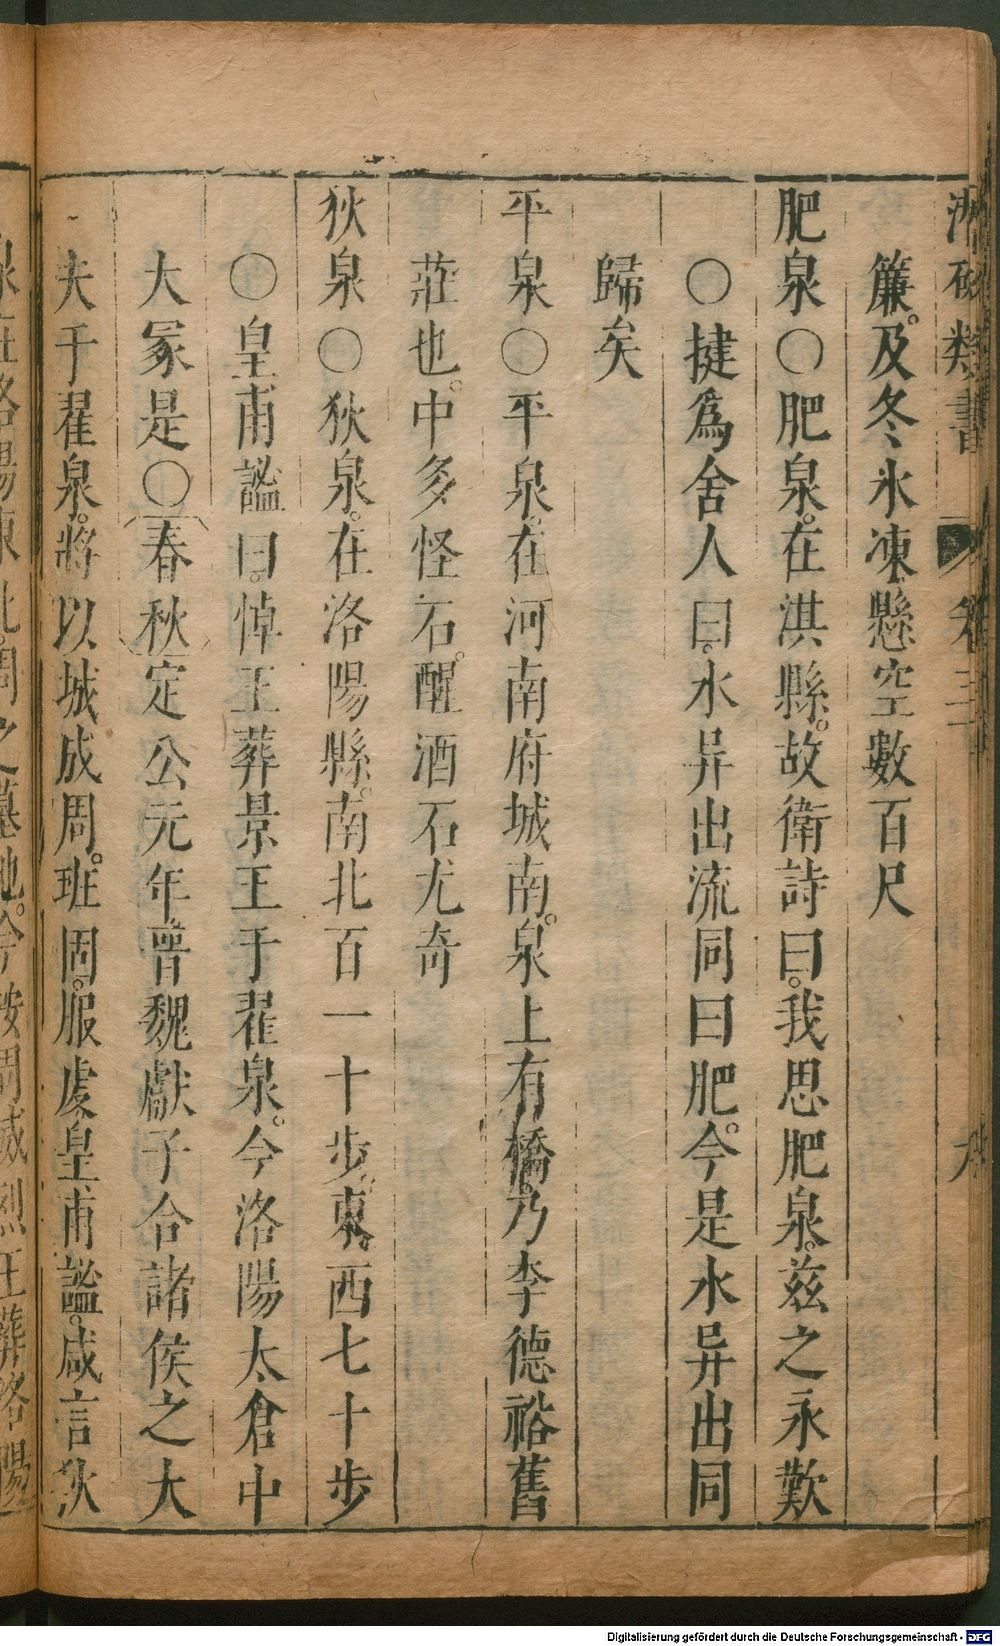 類書 卷三 九
簾。及冬氷凍懸空數百尺
肥泉〇肥泉。在淇縣。故衛詩曰。我思肥泉。茲之永歎
〇揵爲舍人曰。水异出流同曰肥。今是水异出同
歸矣
平泉〇平泉。在河南府城南。泉上有橋。乃李德裕舊
莊也。中多怪石。醒酒石尤奇
狄泉〇狄泉。在洛陽縣。南北百一十步。東西七十步
〇皇甫謐曰。悼王葬景王于翟泉。今洛陽太倉中
大冢是〇春秋定公元年晉魏獻子合諸侯之大
夫于翟泉。將以城成周。班固。服虔。皇甫謐。咸言狄
洛陽東北。周之墓地。今按周威烈王葬洛陽
Digitalisierung gefördert durch die Deutsche Forschungsgemeinschaft - DFG